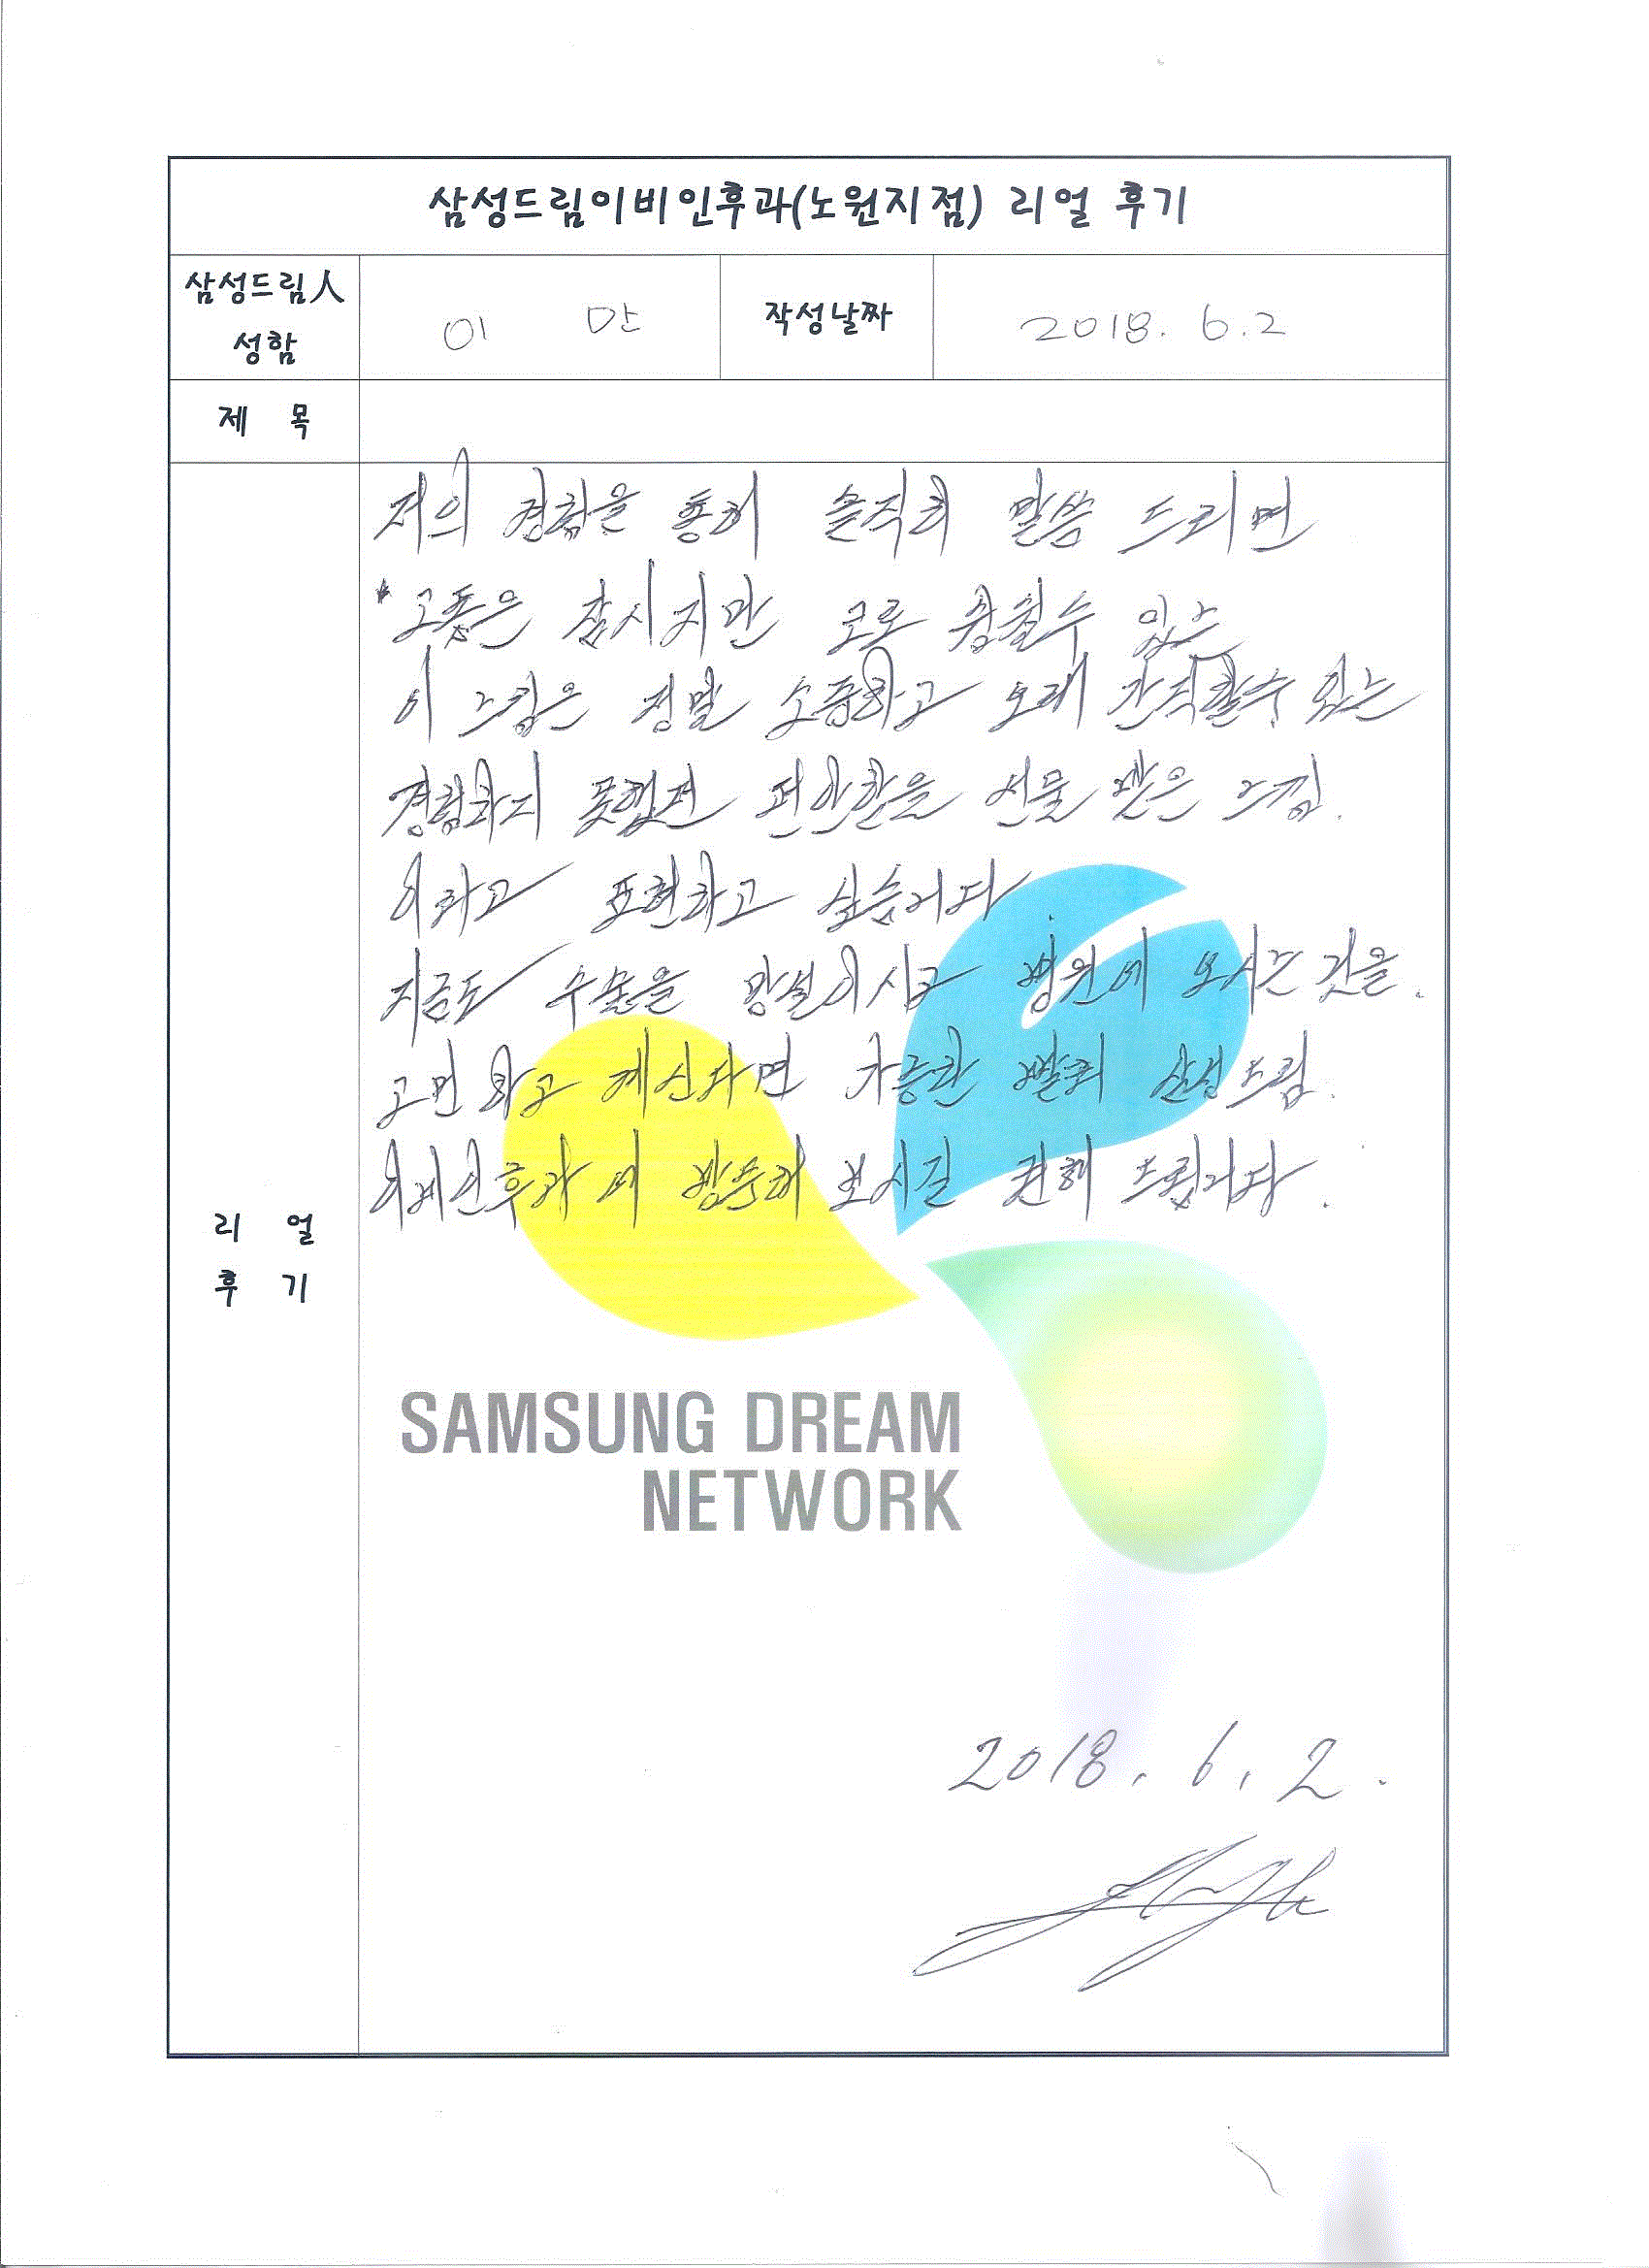 삼성드림이비인후과(노원지점) 리얼 후기
삼성드림人
성함
이 만
작성날짜
2018. 6.2
제 목
저의 경험을 통해 솔직히 말씀 드리면
고통은 잠시지만 코로 숨쉴수 있는
이 느낌은 정말 소중하고 오래 간직할수 있는
경험하지 못했던 편안함을 선물 받은 느낌.
이라고 표현하고 싶습니다.
지금도 수술을 망설이시고 병원에 오시는 것을.
고민 하고 계신다면 가능한 빨리 삼성드림.
이비인후과에 방문해 보시길 권해 드립니다.
리 얼
후 기
SAMSUNG DREAM
NETWORK
2018. 6. 2.